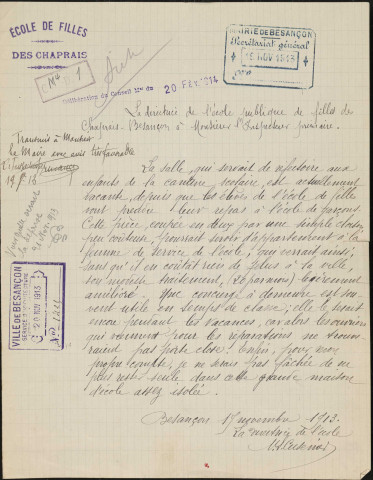 ÉCOLE DE FILLES
DES CHAPRAIS
N° 1
MAIRIE DE BESANÇON
Secrétariat général
NOV 1913
Délibération du Conseil M. du 20 FÉV. 1914
La directrice de l'école publique de filles des
Chaprais, Besançon, à Monsieur l'Inspecteur primaire.
Transmis à Monsieur
le Maire avec avis très favorable
La salle qui servait de réfectoire aux
enfants de la cantine scolaire est actuellement
vacante, depuis que les élèves de l'école de filles
vont prendre leur repas à l'école de garçons.
Cette pièce, coupée en deux par une simple cloison
peu coûteuse, pourrait servir d'appartement à la
femme de service de l'école ; qui verrait ainsi,
sans qu'il en coûtât rien de plus à la ville,
son modeste traitement, (25f par mois) légèrement
amélioré. Une concierge à demeure est sou-
vent utile en temps de classe ; elle le serait
encore pendant les vacances, car alors les ouvriers
qui viennent pour les réparations ne trouve-
raient pas porte close. Enfin, pour mon
propre compte, je ne serais pas fâchée de ne
plus rester seule dans cette grande maison
d'école assez isolée.
VILLE DE BESANÇON
20 NOV 1913
Besançon 17 novembre 1913.
La directrice de l'école